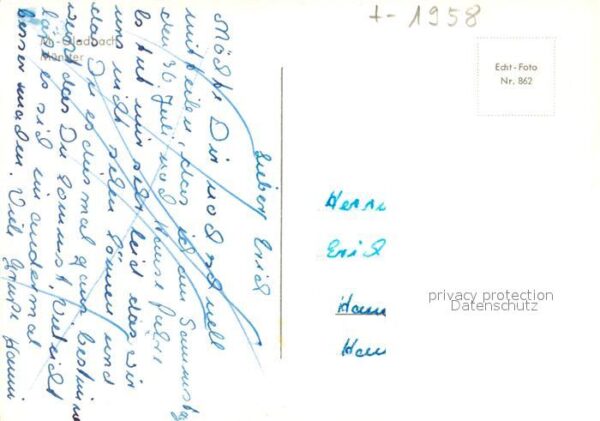 +-1958
M.-Gladbach
Münster
Echt-Foto
Nr. 862
Lieber Erich
Möchte Dir noch schnell
mitteilen, das ich am Samstag
den 30. Juli nach Hause fahre
es tut mir sehr leid das wir
uns nicht sehen können und
das Du es diesmal ganz bestimmt
das Du kommst, vieleicht
läßt es sich ein andermal
besser machen. Viele Grüsse Hanni
Herrn
Erich
privacy protection
Datenschutz